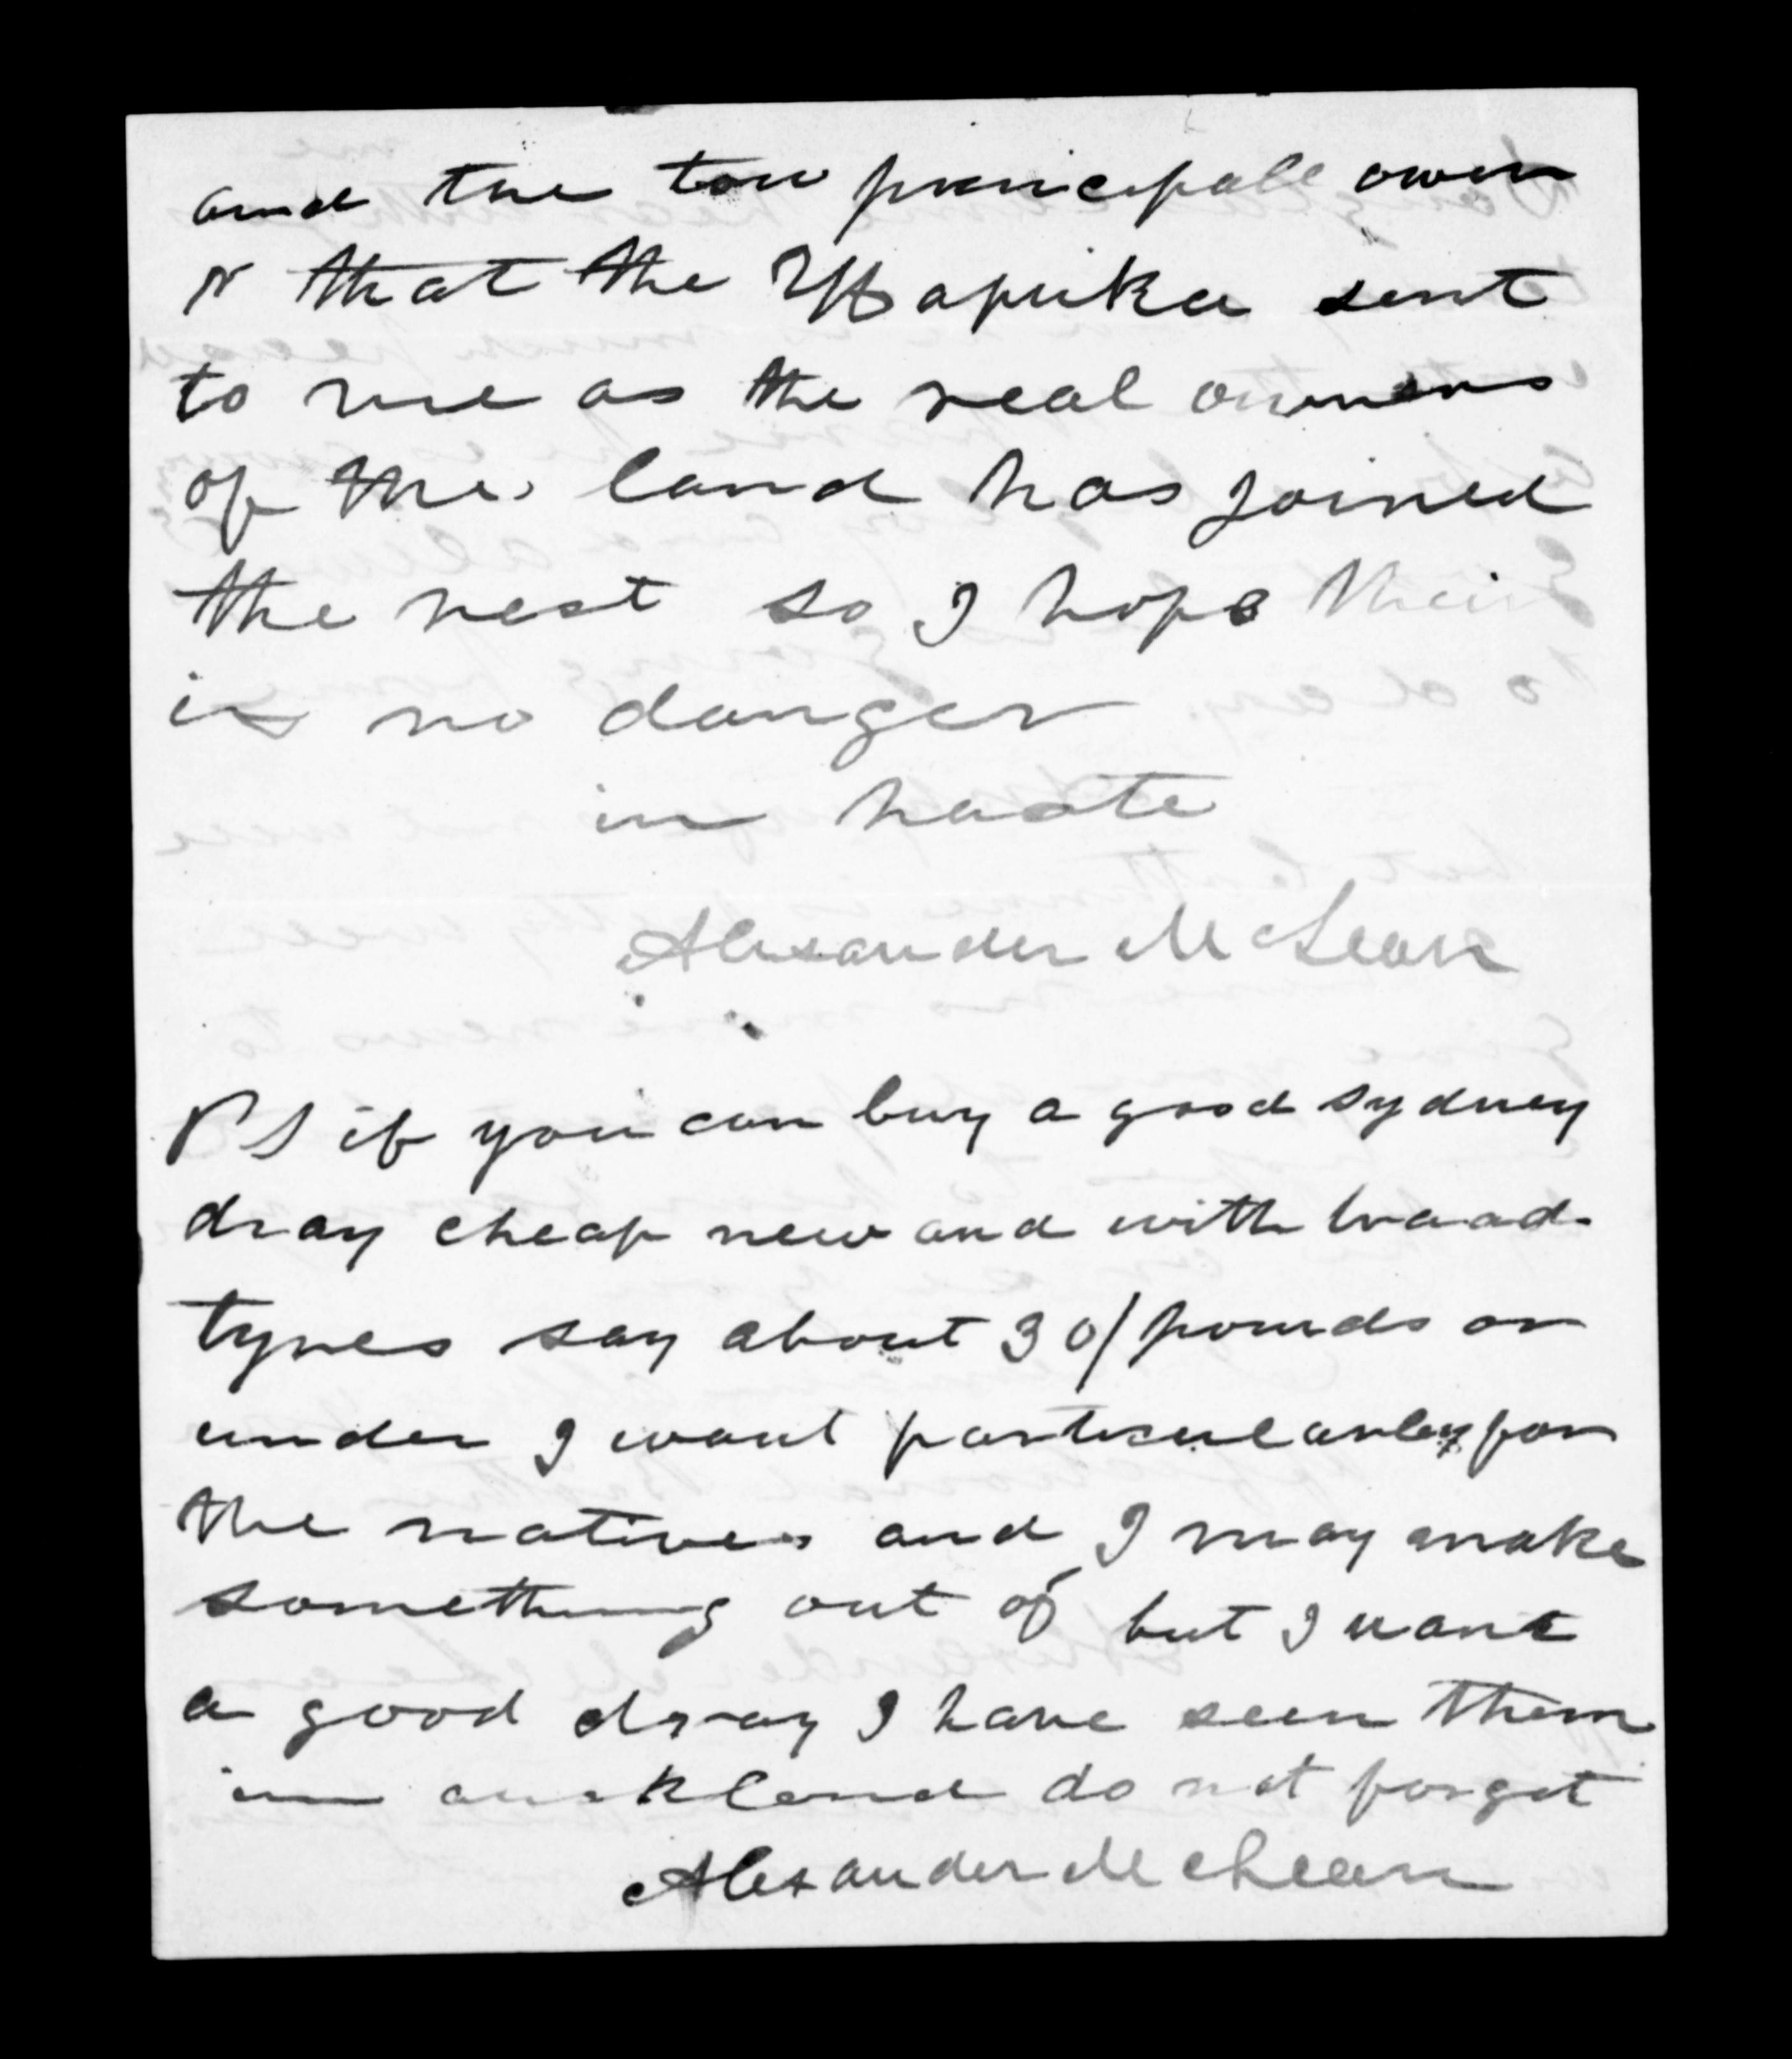 and the tow principall owen
r that the Hapuka sent
to me as the real owners
of the land has joined
the rest so I hope their
is no danger
in haste
Alexander McLean
PS if you can buy a good sydney
dray cheap new and with braad
tyres say about 30/ pounds or
under I want particularley for
the natives and I may make
something out of but I want
a good dray I have seen them
in auckland do not forget
Alexander McLean